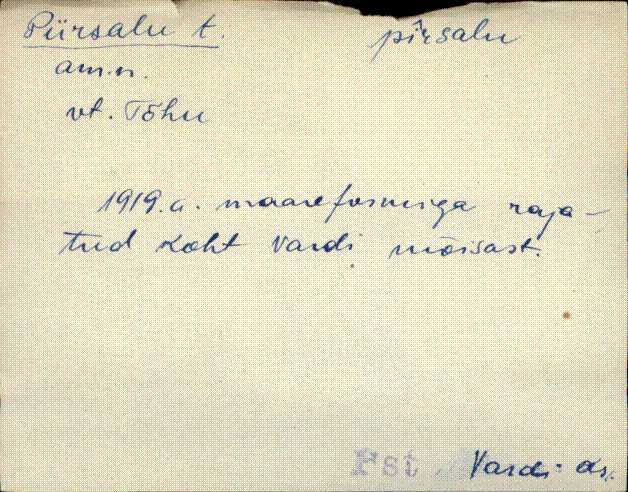 Piirsalu t. pîrsalu
am.n.
vt. Tõhu
1919.a. maareformiga raja-
tud koht Vardi mõisast.
Fst Vardi as.